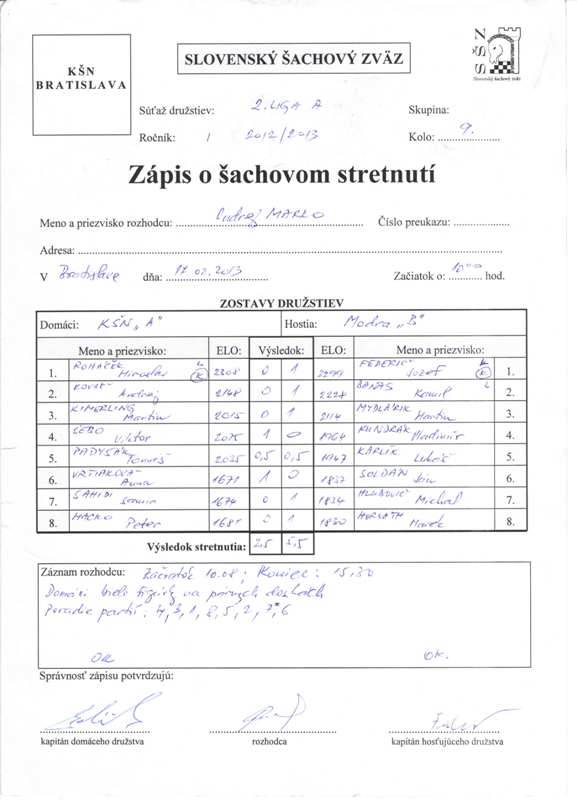 KŠN
BRATISLAVA
SLOVENSKÝ ŠACHOVÝ ZVÄZ
SŠZ
Slovenský šachový zväz
Súťaž družstiev: 2. LIGA A
Skupina:
Ročník: / 2012/2013
Kolo: 9.
Zápis o šachovom stretnutí
Meno a priezvisko rozhodcu: Ondrej MARLO
Číslo preukazu:
Adresa:
V Bratislave dňa: 17.02.2013 Začiatok o: 10 00 hod.
ZOSTAVY DRUŽSTIEV
Domáci: KŠN „A" Hostia: Modra „B"
Meno a priezvisko: ELO: Výsledok: ELO: Meno a priezvisko:
1. ROHÁČEK Miroslav K 2308 0 1 FEDERIČ Jozef K 1.
2. Andrej 2168 0 1 2224 BANAS Kamil 2.
3. KIMERLING Martin 2015 0 1 2114 MYDLÁRIK Martin 3.
4. LEBO Viktor 1 0 1964 KUNDRÁK Vladimír 4.
5. PADYŠÁK Tomáš 2025 0,5 0,5 1947 KARLÍK Lukáš 5.
6. VRTIAKOVÁ Anna 1671 1 0 1837 SOLDÁN Ján 6.
7. SAHIDI 1674 0 1 1834 Michal 7.
8. Peter 1681 0 1 1830 HORVÁTH Marek 8.
Výsledok stretnutia: 2,5 5,5
Záznam rozhodcu: Začiatok 10.08; Koniec: 15,30
Domáci biele figúrky na párnych doskách
Poradie partií: 4, 3, 1, 8, 5, 2, 7, 6
OK OK.
Správnosť zápisu potvrdzujú:
kapitán domáceho družstva rozhodca kapitán hosťujúceho družstva